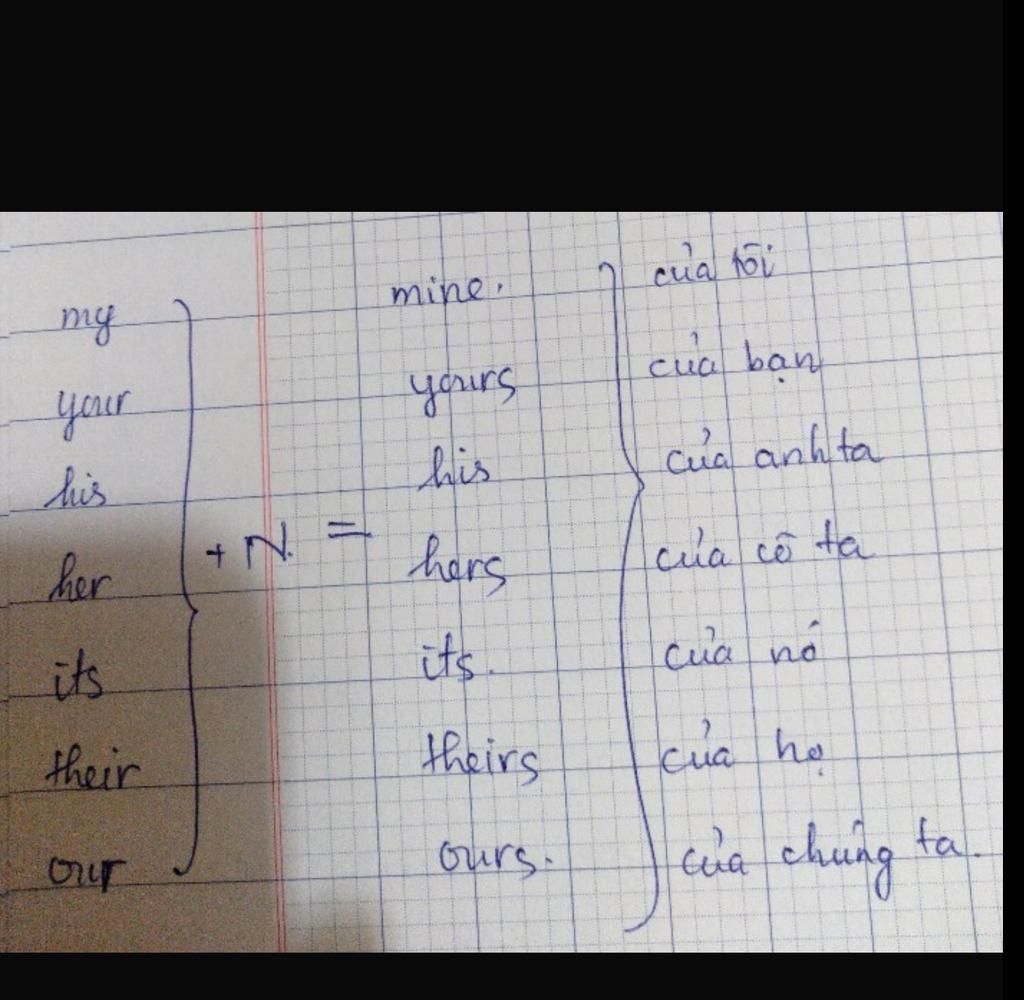 my mine. của tôi
your yours của bạn
his his của anh ta
her + N. = hers của cô ta
its its. của nó
their theirs của họ
our ours. của chúng ta.